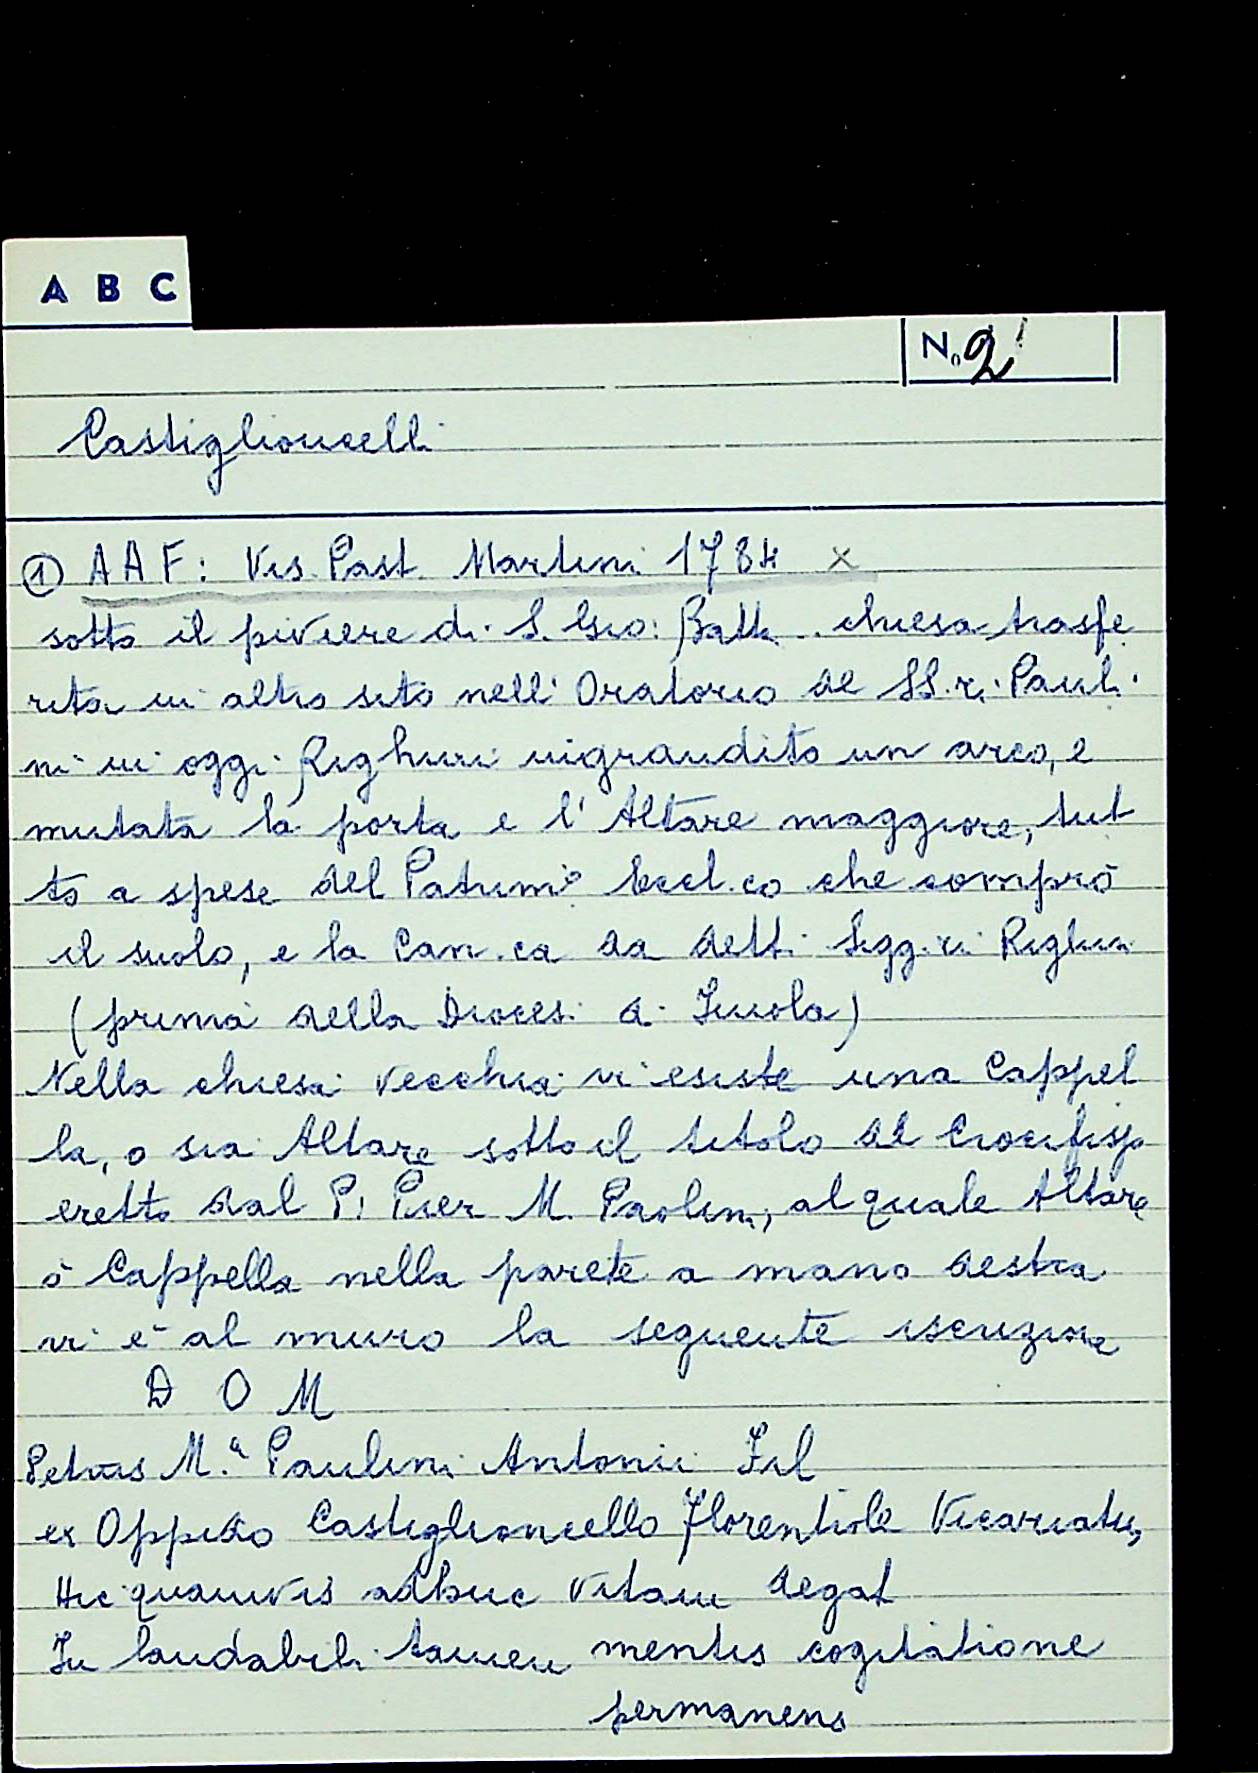 A B C
N. 2
Castiglioncelli
① A A F: Vis. Past. Martini 1784 x
sotto il piviere di S. Gio: Batt... chiesa trasfe
rita in altro sito nell' Oratorio de SS.ri Pauli
ni in oggi Righini ingrandito un arco, e
mutata la porta e l' Altare maggiore, tut
to a spese del Patrim.o Eccl.co che comprò
il suolo, e la Can.ca da detti Sigg.ri Righini
(prima della Diocesi di Imola)
Nella chiesa vecchia vi esiste una Cappel
la, o sia Altare sotto il titolo del Crocifisso
eretto dal P. Pier M. Paolini, al quale Altare
o Cappella nella parete a mano destra
vi è al muro la seguente iscrizione
D O M
Petrus M.a Paulini Antonii Fil
ex Oppido Castiglioncello Florentiole Vicariatus,
Hic quamvis adhuc vitam degat
In laudabili tamen mentis cogitatione
permanens